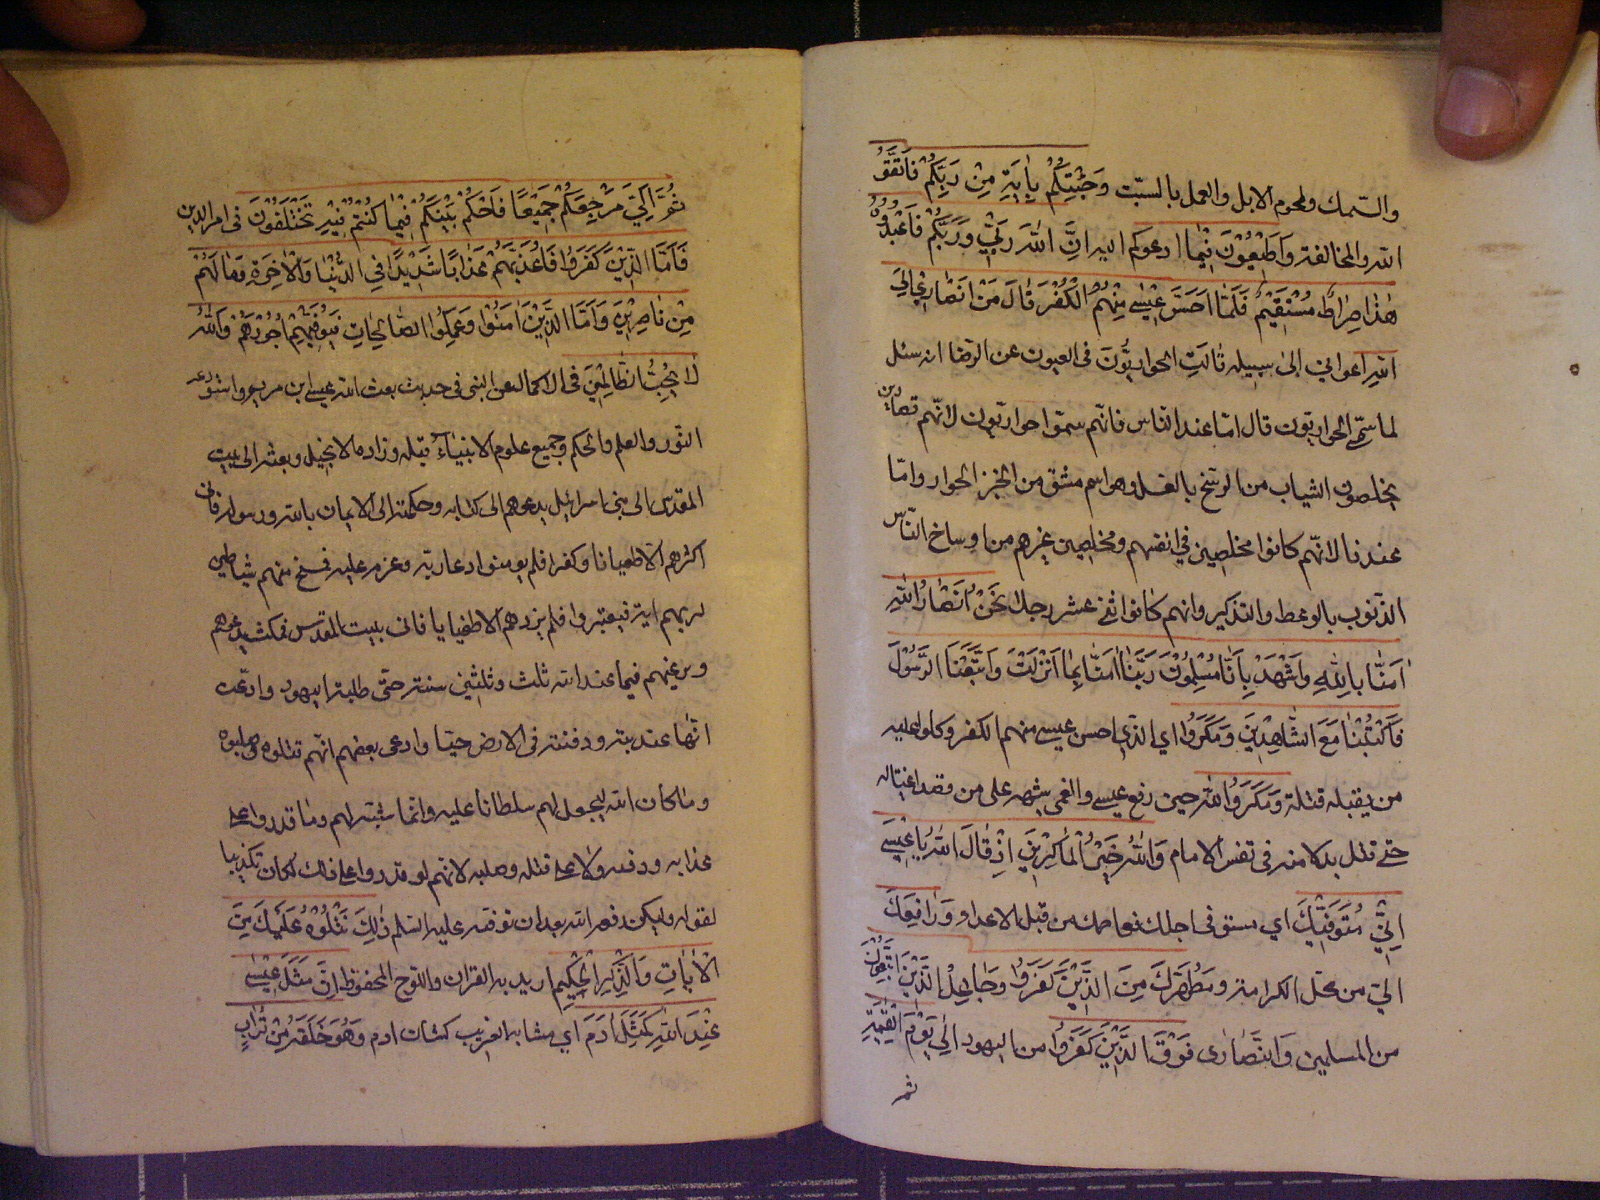 والسمك ولحوم الابل والعمل بالسبت وَجِئْتُكُمْ بِاٰيَةٍ مِنْ رَبِّكُمْ فَاتَّقُوا
اللّٰه والمخالفة وَاَطِيْعُوْنِ فيما ادعوكم اليه اِنَّ اللّٰهَ رَبِّيْ وَرَبُّكُمْ فَاعْبُدُوْهُ
هٰذَا صِرَاطٌ مُسْتَقِيْمٌ فَلَمَّا اَحَسَّ عِيْسٰى مِنْهُمُ الْكُفْرَ قَالَ مَنْ اَنْصَارِيْ اِلَى
اللّٰهِ اعواني الى سبيله قَالَتِ الحَوَارِيُّونَ فى العيون عن الرضا انه سئل
لما سمّى الحواريّون قال امّا عند النّاس فانّهم سمّوا حواريّون لانّهم قصّارين
يخلصون الثياب من الوسخ بالغسل وهو اسم مشتق من الخبز الحوار وامّا
عندنا لانّهم كانوا مخلصين في انفسهم ومخلصين غيرهم من اوساخ النّاس
الذّنوب بالوعظ والتذكير وانهم كانوا اثنى عشر رجلا نَحْنُ اَنْصَارُ اللّٰهِ
اٰمَنَّا بِاللّٰهِ وَاشْهَدْ بِاَنَّا مُسْلِمُوْنَ رَبَّنَا اٰمَنَّا بِمَا اَنْزَلْتَ وَاتَّبَعْنَا الرَّسُوْلَ
فَاكْتُبْنَا مَعَ الشَّاهِدِيْنَ وَمَكَرُوا اي الّذي احسّ عيسى منهم الكفر وكلوا عليه
من يقتله قتلة وَمَكَرَ اللّٰه حين رفع عيسى والقى شبهه على من قصد اغتياله
حتى قتل بدلا منه فى تفسير الامام وَاللّٰهُ خَيْرُ الْمَاكِرِيْنَ اِذْ قَالَ اللّٰهُ يَا عِيْسٰى
اِنِّيْ مُتَوَفِّيْكَ اي مستوفى اجلك عاصمك من قبل الاعداء وَرَافِعُكَ
اليّ من محل الكرامة وَمُطَهِّرُكَ مِنَ الَّذِيْنَ كَفَرُوْا وَجَاعِلُ الَّذِيْنَ اتَّبَعُوْكَ
من المسلمين والنَّصَارى فَوْقَ الَّذِيْنَ كَفَرُوْا من اليهود اِلٰى يَوْمِ الْقِيٰمَةِ
ثم
ثُمَّ اِلَيَّ مَرْجِعُكُمْ جَمِيْعًا فَاَحْكُمُ بَيْنَكُمْ فِيْمَا كُنْتُمْ فِيْهِ تَخْتَلِفُوْنَ فى امر الدين
فَاَمَّا الَّذِيْنَ كَفَرُوْا فَاُعَذِّبُهُمْ عَذَابًا شَدِيْدًا فِي الدُّنْيَا وَالْاٰخِرَةِ وَمَا لَهُمْ
مِنْ نَاصِرِيْنَ وَاَمَّا الَّذِيْنَ اٰمَنُوْا وَعَمِلُوا الصَّالِحَاتِ فَيُوَفِّيْهِمْ اُجُوْرَهُمْ وَاللّٰهُ
لَا يُحِبُّ الظَّالِمِيْنَ فى الاكمال عن النبى فى حديث بعث اللّٰه عيسى ابن مريم واستودعه
النّور والعلم والحكم وجميع علوم الانبياء قبله وزاده الانجيل وبعثه الى بيت
المقدس الى بنى اسرائيل يدعوهم الى كتابه وحكمته والى الايمان باللّٰه ورسوله فابى
اكثرهم الّا طغيانا وكفرا فلم يومنوا دعا ربّه وعزم عليه فمسخ منهم شياطين
ليريهم اية فيعتبروا فلم يزدهم الا طغيانا فاتى بيت المقدس فمكث يدعوهم
ويرغبهم فيما عند اللّٰه ثلث وثلثين سنة حتّى طلبته اليهود وادعت
انّها عذبته ودفنته فى الارض حيّا وادعى بعضهم انّهم قتلوه وصلبوه
وما كان اللّٰه ليجعل لهم سلطانا عليه وانّما شبّه لهم وما قدروا على
عذابه ودفنه ولا على قتله وصلبه لانهم لو قدروا على ذلك لكان تكذيبا
لقوله ولكن رفعه اللّٰه بعد ان توفّه عليه السّلم ذٰلِكَ نَتْلُوْهُ عَلَيْكَ مِنَ
الْاٰيَاتِ وَالذِّكْرِ الْحَكِيْمِ اريد به القران واللّوح المحفوظ اِنَّ مَثَلَ عِيْسٰى
عِنْدَ اللّٰهِ كَمَثَلِ اٰدَمَ اي مشابه الغريب كشان ادم وَهُوَ خَلَقَهُ مِنْ تُرَابٍ